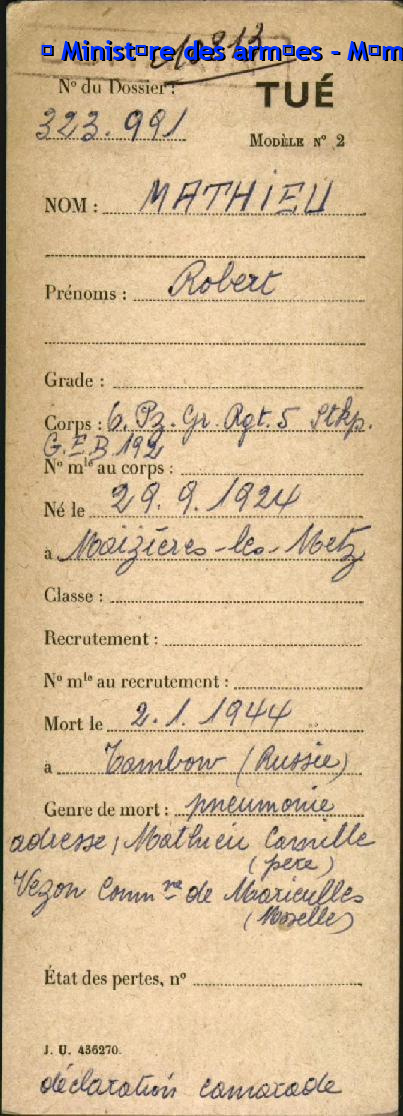 Ministère des armées - Mém
N° 213
N° du Dossier :
TUÉ
323.991
MODÈLE N° 2
NOM : MATHIEU
Prénoms : Robert
Grade :
Corps : 6. Pz. Gr. Rgt. 5 Stkp.
G.E.B 192
N° mle au corps :
Né le 29.9.1924
à Maizières-les-Metz
Classe :
Recrutement :
N° mle au recrutement :
Mort le 2.1.1944
à Tambow (Russie)
Genre de mort : pneumonie
adresse, Mathieu Camille
(père)
Vezon Comm ne de Marieulles
(Moselle)
État des pertes, n°
J. U. 436270.
déclaration camarade